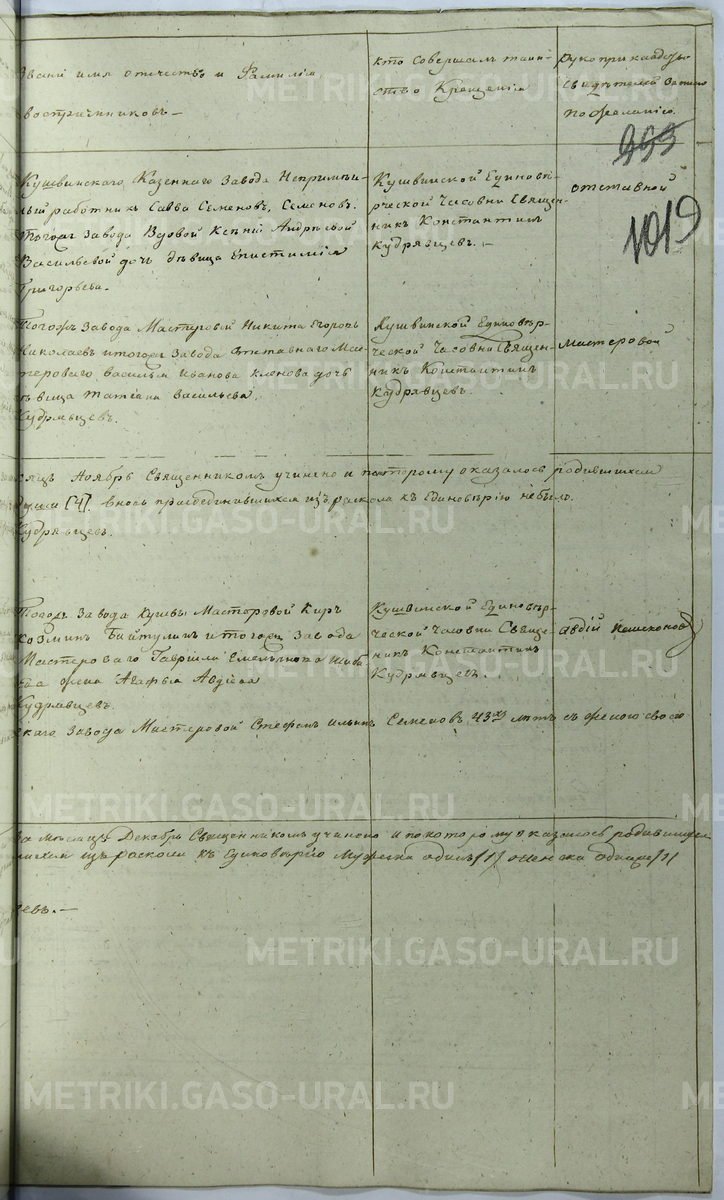 Званіе имя отечество и Фамилія
воспріемниковъ –
кто Совершалъ таин-
ство Крещенія
Рукоприкладство
свидѣтелей записи
по желанію.
353
1019
Кушвинскаго Казеннаго завода Непремѣн-
ный работникъ Савва Семеновъ, Семеновъ.
тогожъ завода Вдовой Ксеніи Андреевой
Васильевой дочь дѣвица Епистимія
Григорьева.
Кушвинской Единовѣ-
рческой Часовни Священ-
никъ Константинъ
Кудрявцевъ. –
отставной
Тогожъ завода Мастеровой Никита Егоровъ
Николаевъ и тогожъ завода отставнаго Мас-
тероваго Василья Иванова Кленова дочь
дѣвица Татіана Васильева.
Кудрявцевъ.
Кушвинской Единовѣр-
ческой Часовни Священ-
никъ Константинъ
Кудрявцевъ.
Мастеровой
сяцъ Ноябрь Священникомъ учинено и по которому оказалось родившихся
души [4]. вновь присоединившихся изъ раскола къ Единовѣрію небыло.
Кудрявцевъ.
Тогожъ завода Кушвы Мастеровой Киръ
Козминъ Байтулинъ и тогожъ завода
Мастероваго Гавріила Емельянова
жена Агафья Авдіева
Кудрявцевъ.
Кушвинской Единовѣр-
ческой Часовни Свяще-
никъ Константинъ
Кудрявцевъ.
Авдій Пешехонов
скаго завода Мастеровой Стефанъ Ильинъ Семеновъ 43хъ лѣтъ съ женою своею
за мѣсяцъ Декабрь Священникомъ учинено и по которому оказалось родившихся
шихся изъ раскола къ Единовѣрію Мужеска одинъ /1/ женска одна /1/
цевъ. –
METRIKI.GASO-URAL.RU
METRIKI.GASO-URAL.RU
METRIKI.GASO-URAL.RU
METRIKI.GASO-URAL.RU
METRIKI.GASO-URAL.RU
METRIKI.GASO-URAL.RU
METRIKI.GASO-URAL.RU
METRIKI.GASO-URAL.RU